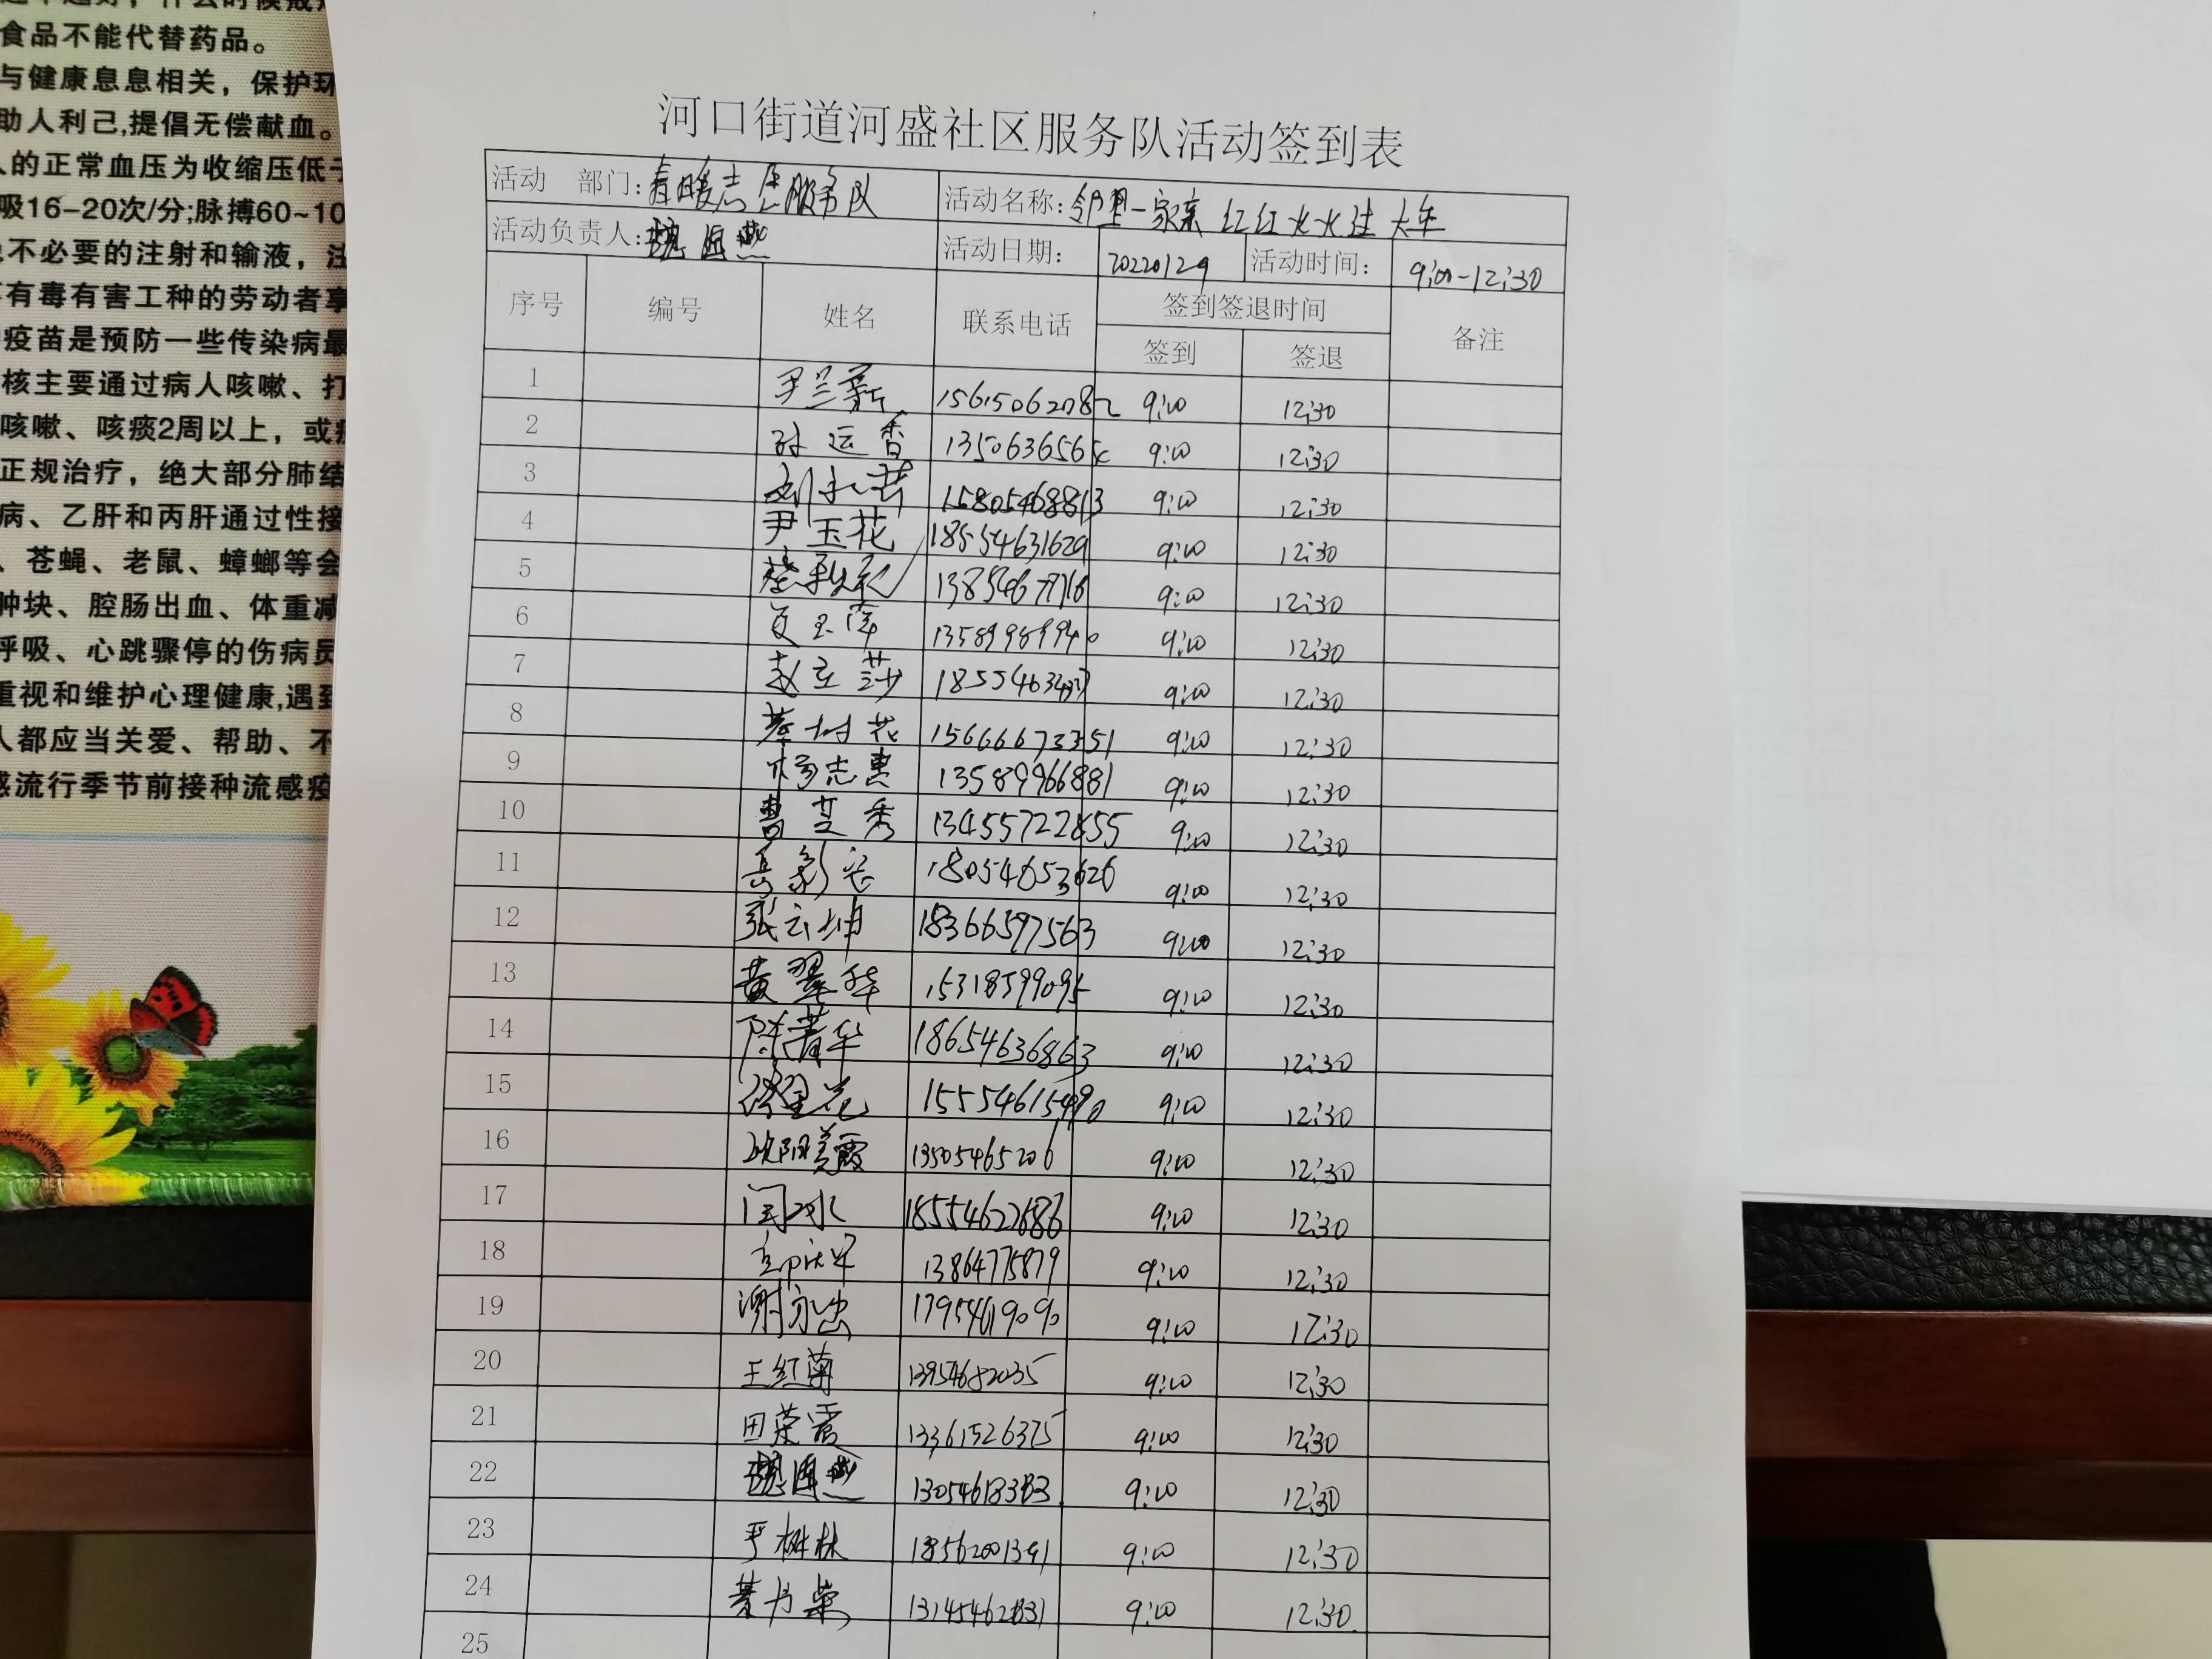 食品不能代替药品。
与健康息息相关，保护环
助人利己,提倡无偿献血。
人的正常血压为收缩压低于
吸16-20次/分;脉搏60~10
不必要的注射和输液，注
有毒有害工种的劳动者享
疫苗是预防一些传染病最
核主要通过病人咳嗽、打
咳嗽、咳痰2周以上，或痰
正规治疗，绝大部分肺结
病、乙肝和丙肝通过性接
、苍蝇、老鼠、蟑螂等会
肿块、腔肠出血、体重减
呼吸、心跳骤停的伤病员
重视和维护心理健康,遇到
人都应当关爱、帮助、不
感流行季节前接种流感疫
河口街道河盛社区服务队活动签到表
活动 部门：春暖志愿服务队 活动名称：邻里一家亲 红红火火过大年
活动负责人： 活动日期： 20220129 活动时间： 9:00-12:30
序号 编号 姓名 联系电话 签到签退时间 备注
签到 签退
1 尹兰新 15615062082 9:00 12:30
2 孙运香 1350636565 9:00 12:30
3 15805468813 9:00 12:30
4 尹玉花 18554631629 9:00 12:30
5 9:00 12:30
6 13589989940 9:00 12:30
7 赵立莎 9:00 12:30
8 15666673351 9:00 12:30
9 杨志惠 13589966881 9:00 12:30
10 曹芝秀 13455722855 9:00 12:30
11 18054653626 9:00 12:30
12 张云坤 18366597563 9:00 12:30
13 黄翠华 15318599095 9:00 12:30
14 陈菁华 18654636863 9:00 12:30
15 15554615490 9:00 12:30
16 欧阳美霞 13505465206 9:00 12:30
17 闫冰 18554627686 9:00 12:30
18 13864775879 9:00 12:30
19 谢永忠 17954619090 9:00 12:30
20 王红菊 13954682035 9:00 12:30
21 田荣霞 13361526375 9:00 12:30
22 9:00 12:30
23 于树林 18562001391 9:00 12:30
24 9:00 12:30
25